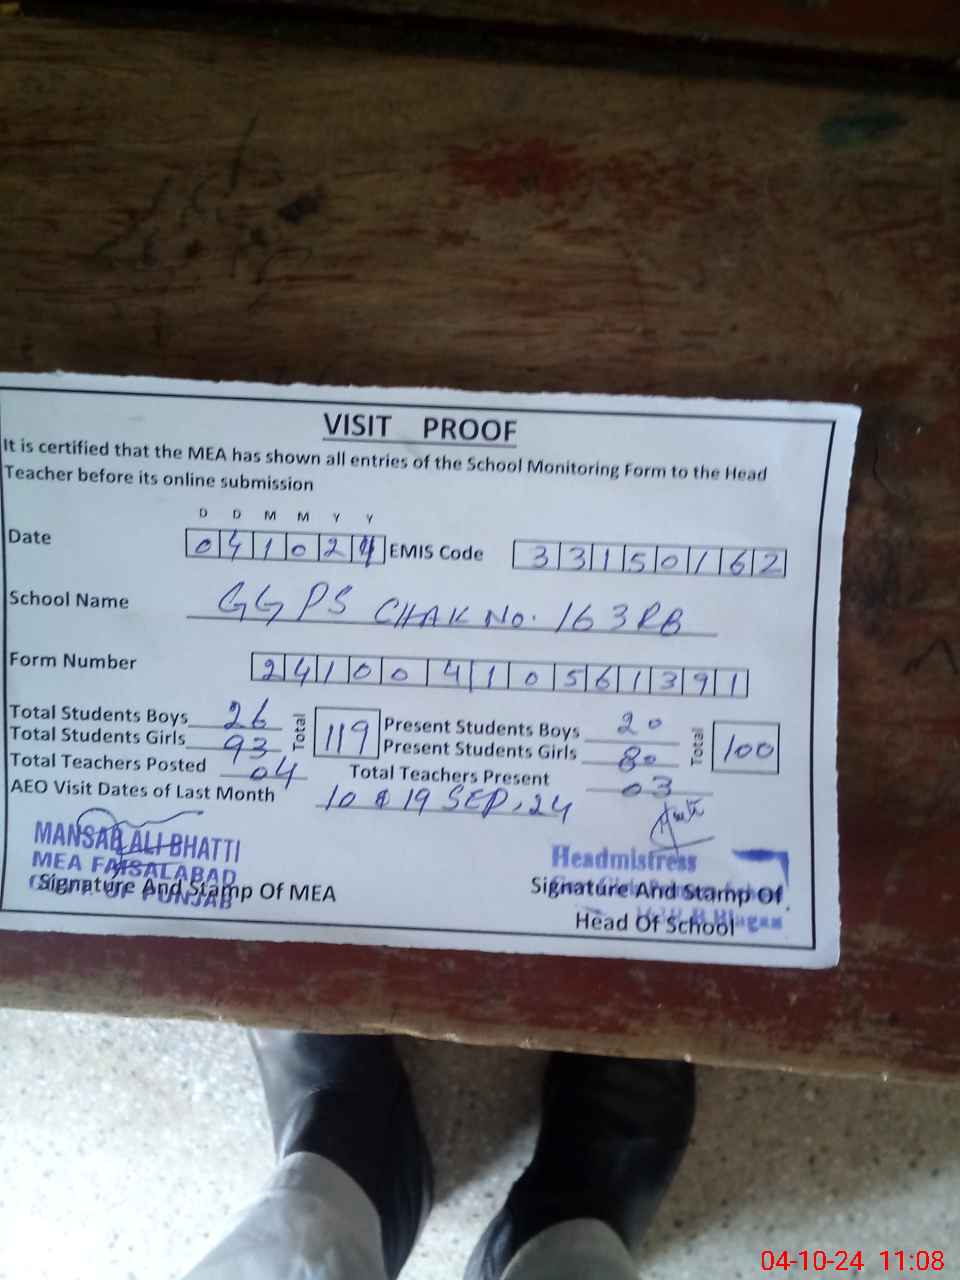 VISIT PROOF
It is certified that the MEA has shown all entries of the School Monitoring Form to the Head
Teacher before its online submission
D D M M Y Y
Date 041024 EMIS Code 33150162
School Name GGPS CHAK No. 163RB
Form Number 24100410561391
Total Students Boys 26 Total 119 Present Students Boys 20 Total 100
Total Students Girls 93 Present Students Girls 80
Total Teachers Posted 04 Total Teachers Present 03
AEO Visit Dates of Last Month 10 & 19 SEP, 24
MANSAB ALI BHATTI
MEA FAISALABAD
OF PUNJAB
Signature And Stamp Of MEA
Headmistress
Signature And Stamp Of
Head Of School
04-10-24 11:08